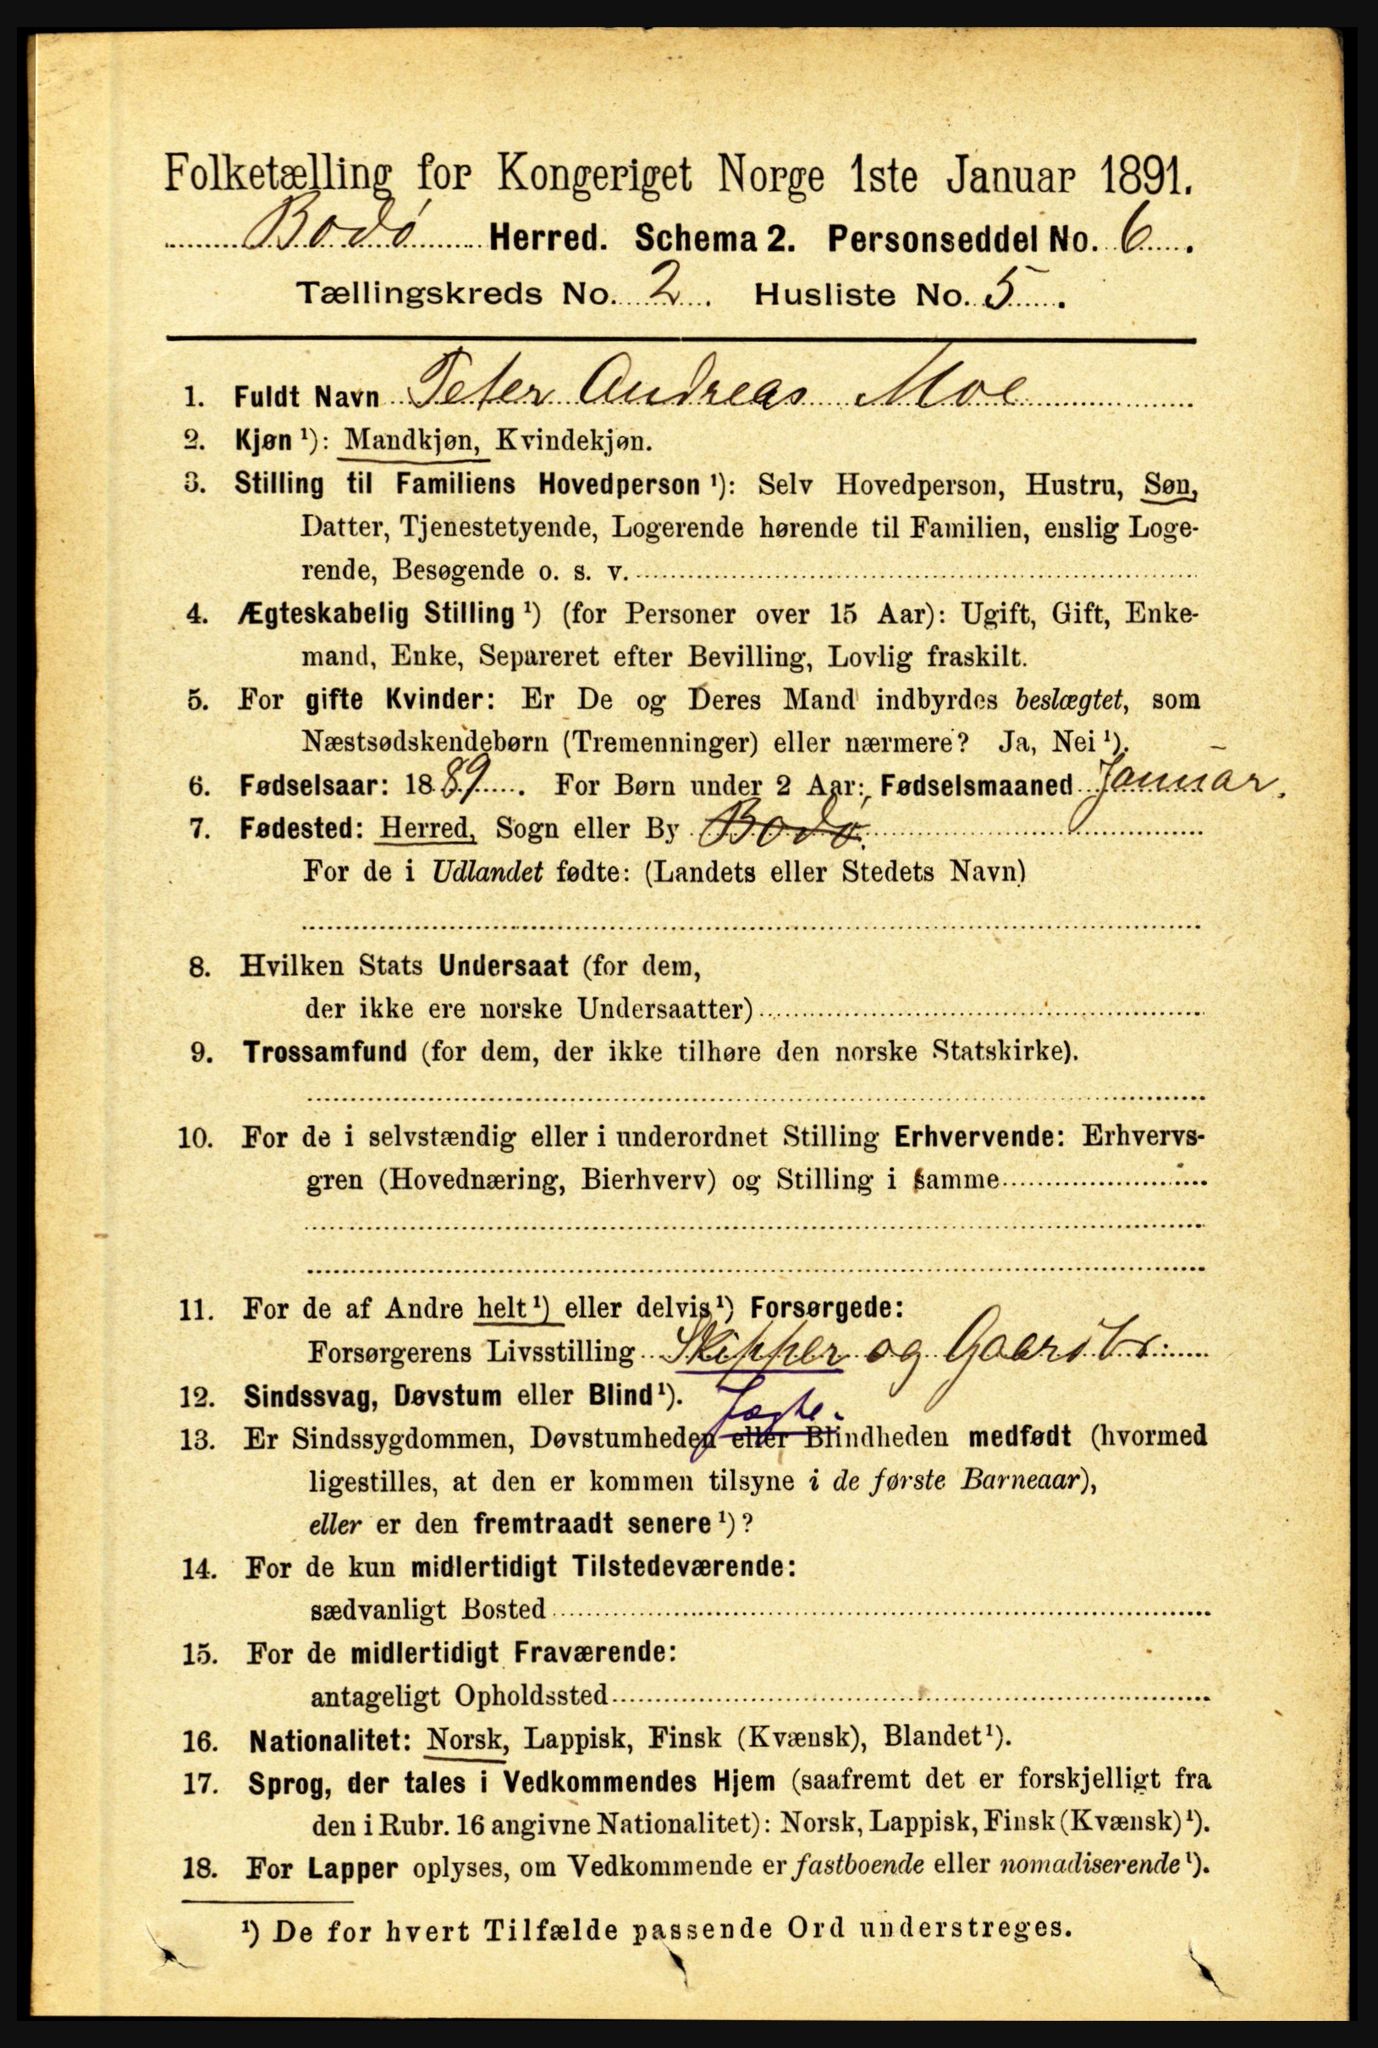 Folketælling for Kongeriget Norge 1ste Januar 1891.
Bodø Herred. Schema 2. Personseddel No. 6.
Tællingskreds No. 2. Husliste No. 5.
1. Fuldt Navn Peter Andreas Moe
2. Kjøn ¹): Mandkjøn, Kvindekjøn.
3. Stilling til Familiens Hovedperson ¹): Selv Hovedperson, Hustru, Søn,
Datter, Tjenestetyende, Logerende hørende til Familien, enslig Loge-
rende, Besøgende o. s. v.
4. Ægteskabelig Stilling ¹) (for Personer over 15 Aar): Ugift, Gift, Enke-
mand, Enke, Separeret efter Bevilling, Lovlig fraskilt.
5. For gifte Kvinder: Er De og Deres Mand indbyrdes beslægtet, som
Næstsødskendebørn (Tremenninger) eller nærmere? Ja, Nei ¹).
6. Fødselsaar: 1889. For Børn under 2 Aar: Fødselsmaaned Januar.
7. Fødested: Herred, Sogn eller By Bodø.
For de i Udlandet fødte: (Landets eller Stedets Navn)
8. Hvilken Stats Undersaat (for dem,
der ikke ere norske Undersaatter)
9. Trossamfund (for dem, der ikke tilhøre den norske Statskirke).
10. For de i selvstændig eller i underordnet Stilling Erhvervende: Erhvervs-
gren (Hovednæring, Bierhverv) og Stilling i samme
11. For de af Andre helt ¹) eller delvis ¹) Forsørgede:
Forsørgerens Livsstilling Skipper og Gaardbr.
12. Sindssvag, Døvstum eller Blind ¹).
Jægte.
13. Er Sindssygdommen, Døvstumheden eller Blindheden medfødt (hvormed
ligestilles, at den er kommen tilsyne i de første Barneaar),
eller er den fremtraadt senere ¹)?
14. For de kun midlertidigt Tilstedeværende:
sædvanligt Bosted
15. For de midlertidigt Fraværende:
antageligt Opholdssted
16. Nationalitet: Norsk, Lappisk, Finsk (Kvænsk), Blandet ¹).
17. Sprog, der tales i Vedkommendes Hjem (saafremt det er forskjelligt fra
den i Rubr. 16 angivne Nationalitet): Norsk, Lappisk, Finsk (Kvænsk) ¹).
18. For Lapper oplyses, om Vedkommende er fastboende eller nomadiserende ¹).
¹) De for hvert Tilfælde passende Ord understreges.